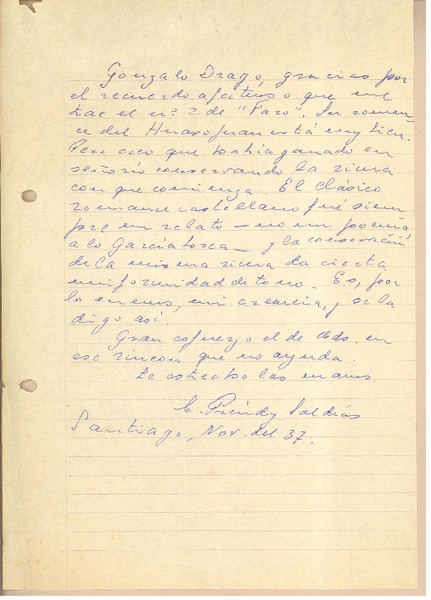 Gonzalo Drago, gracias por
el recuerdo afectuoso que me
trae el nº 2 de "Faro". Su roman
ce del Huaso Juan está muy bien.
Pero creo que habría ganado en
señorío conservando la rima
con que comienza. El clásico
romance castellano fué siem
pre un relato — no un poema
a lo García Lorca — y la conservación
de la misma rima da cierta
uniformidad de tono. Es, por
lo menos, mi creencia, y se la
digo así.
Gran esfuerzo el de Uds. en
ese rincón que no ayuda.
Le estrecho las manos.
C. Préndez Saldías
Santiago, Nov. del 37.